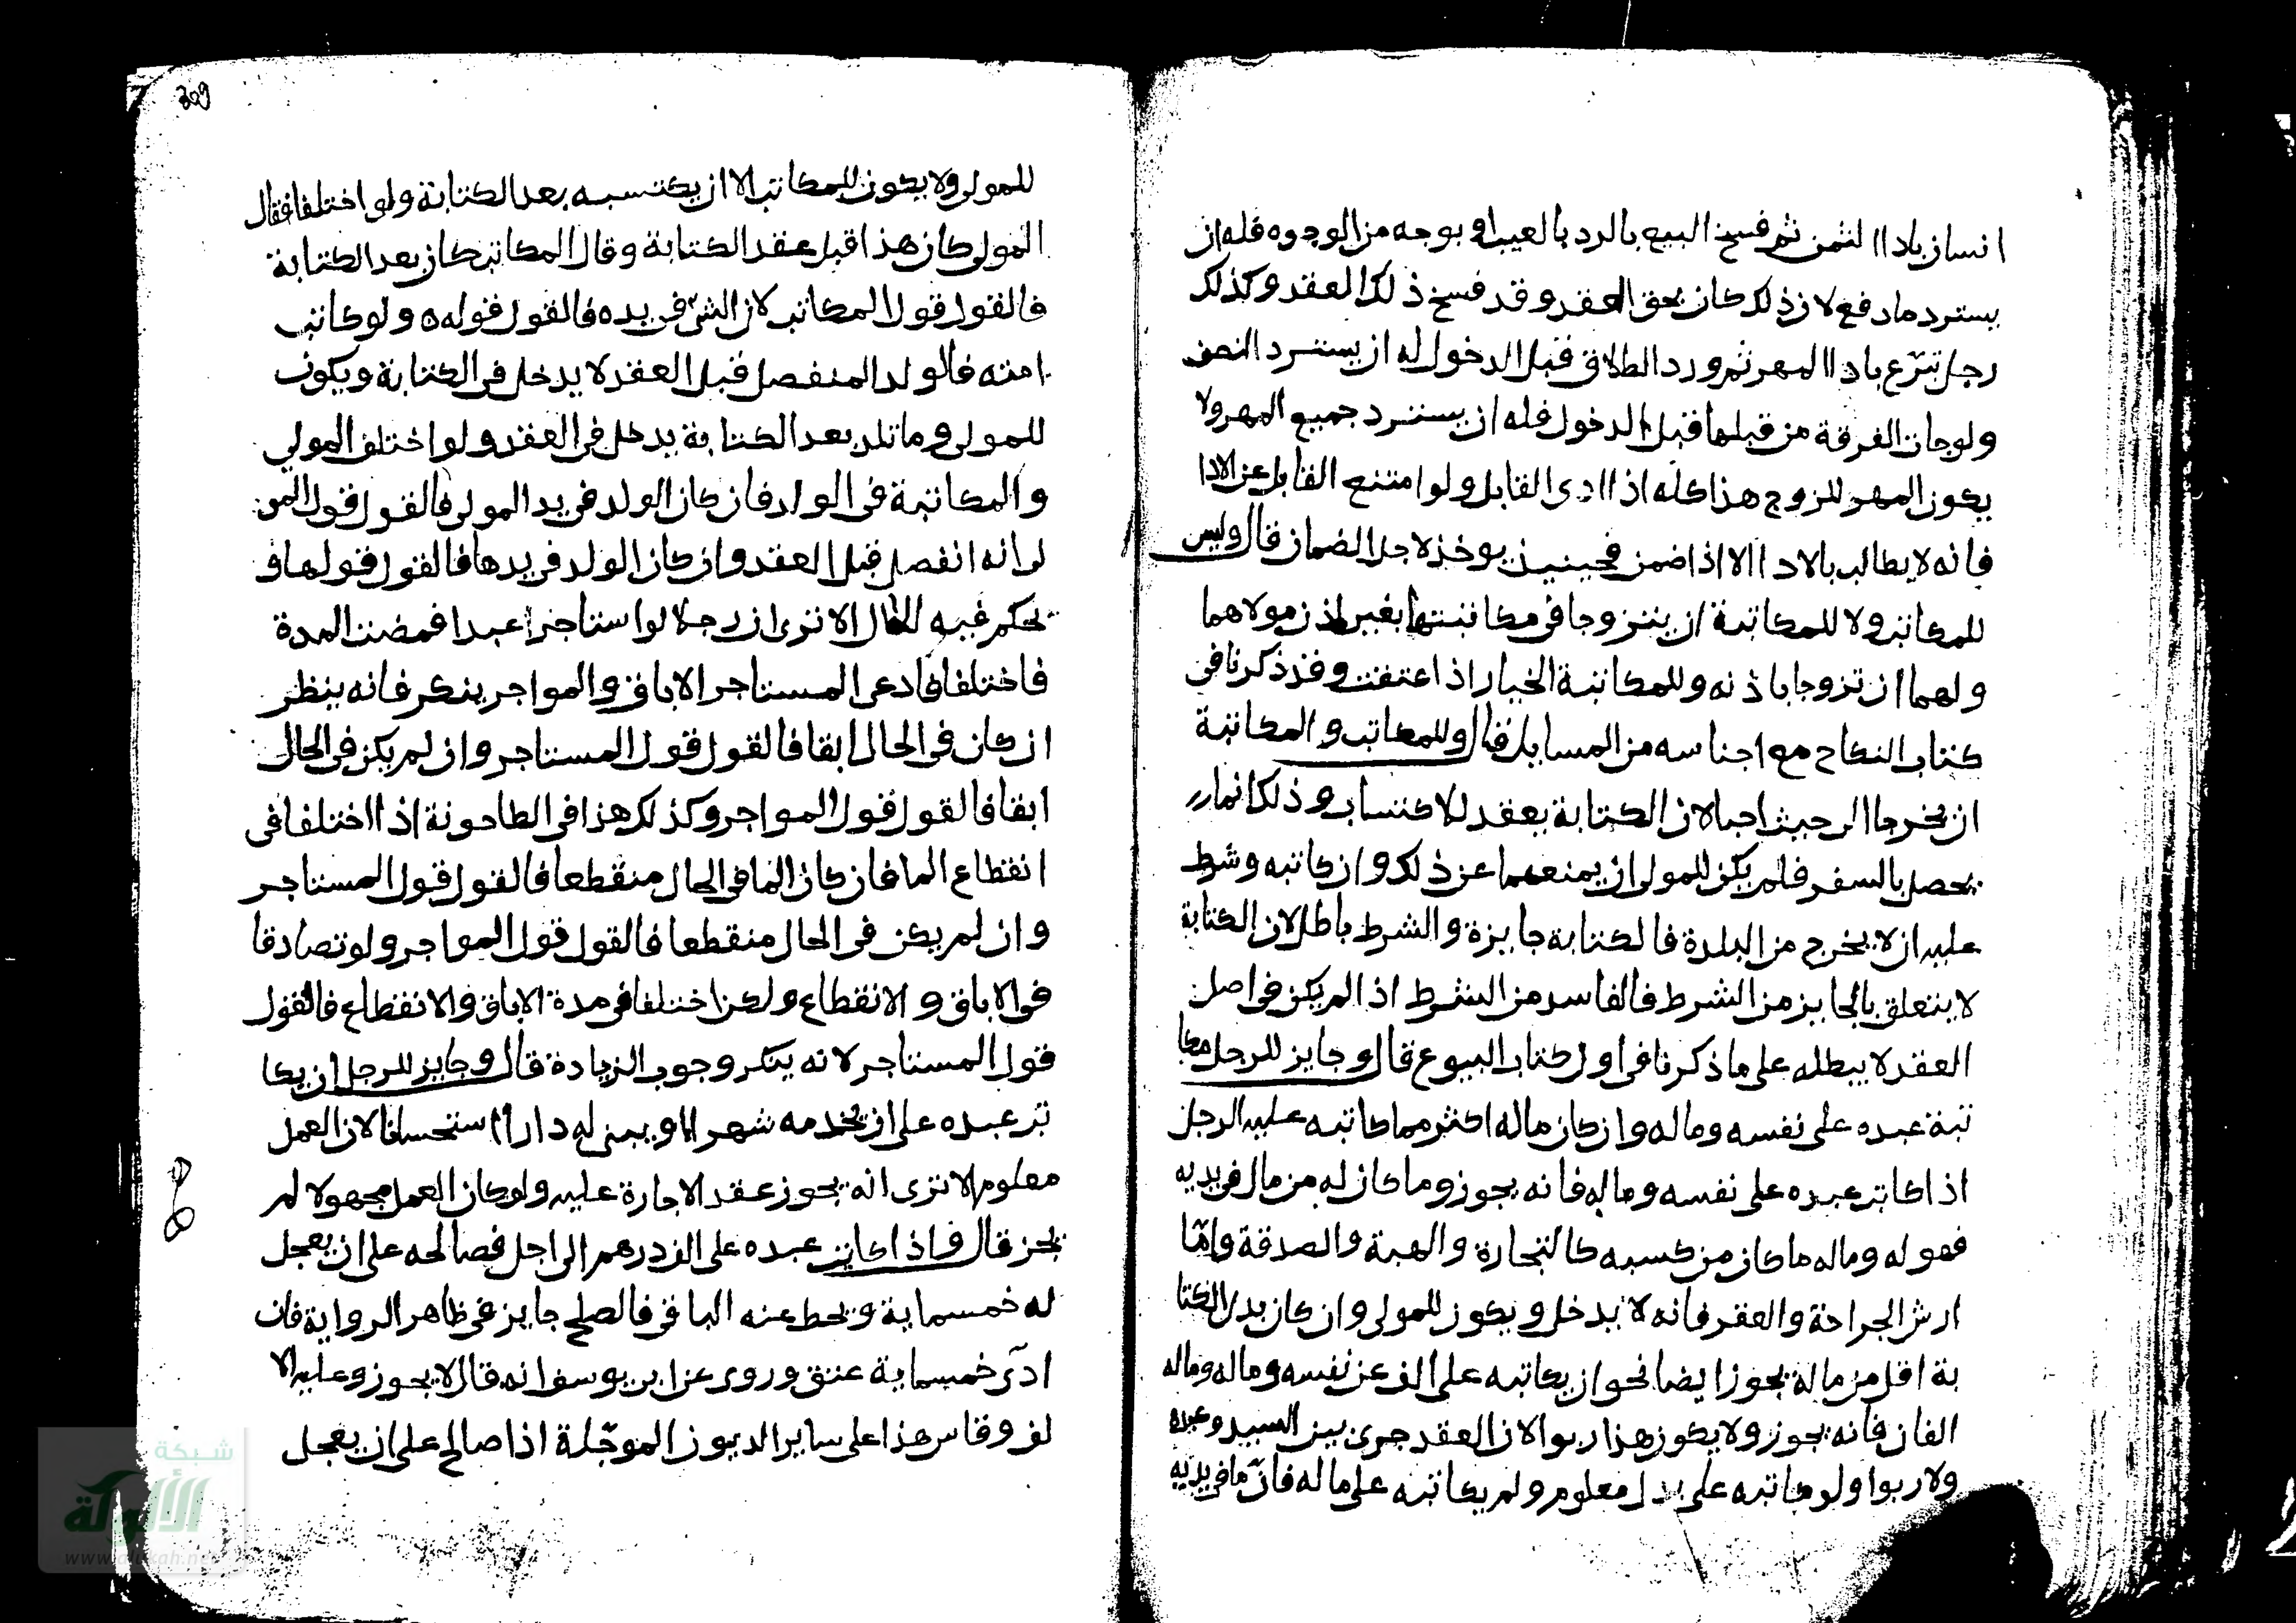 انسان باداا لثمن ثم فسخ البيع بالرد بالعيب او بوجه من الوجوه فله ان
يسترد ما دفع لان ذلك كان بحق العقد وقد فسخ ذلك العقد وكذلك
رجل تبرّع باداا المهر ثم ورد الطلاق قبل الدخول له ان يسترد النصف
ولو جات الفرقة من قبلها قبل الدخول فله ان يسترد جميع المهر ولا
يكون المهر للزوج هذا كله اذا ادى القابل ولو امتنع القابل عن الادا
فانه لا يطالب بالادا الا اذا ضمن فحينيذ يوخذ لاجل الضمان قال وليس
للمكاتب ولا للمكاتبة ان يتزوجا في مكاتبتهما بغير اذن مولاهما
ولهما ان تزوجا باذنه وللمكاتبة الخيار اذا اعتقت وقد ذكرنا في
كتاب النكاح مع اجناسه من المسايل قال وللمكاتب والمكاتبة
ان يخرجا الى حيث احبا لان الكتابة بعقد للاكتساب وذلك انما
يحصل بالسفر فلم يكن للمولى ان يمنعهما عن ذلك وان كاتبه وشرط
عليه ان لا يخرج من البلدة فالكتابة جايزة والشرط باطل لان الكتابة
لا يتعلق بالجايز من الشرط فالفاسد من الشرط اذا لم يكن في اصل
العقد لا يبطله على ما ذكرنا في اول كتاب البيوع قال وجايز للرجل مكا
تبة عبده على نفسه وماله وان كان ماله اكثر مما كاتبه عليه الرجل
اذا كاتب عبده على نفسه وماله فانه يجوز وما كان له من مال في يديه
فهو له وماله ما كان من كسبه كالتجارة والهبة والصدقة وامّا
ارش الجراحة والعقر فانه لا يدخل ويكون للمولى وان كان بدل الكتا
بة اقل من ماله يجوز ايضا نحو ان يكاتبه على الف عن نفسه وماله وماله
الفان فانه يجوز ولا يكون هذا ربوا لان العقد جرى بين السيد وعبده
ولا ربوا ولو كاتبه على بدل معلوم ولم يكاتبه على ماله فانّ ما في يديه
309
للمولى ولا يكون للمكاتب الا ان يكتسبه بعد الكتابة ولو اختلفا فقال
المولى كان هذا قبل عقد الكتابة وقال المكاتب كان بعد الكتابة
فالقول قول المكاتب لان الشئ في يده فالقول قوله ه ولو كاتب
امته فالولد المنفصل قبل العقد لا يدخل في الكتابة ويكون
للمولى وما تلد بعد الكتابة يدخل في العقد ولو اختلف المولي
والمكاتبة في الولد فان كان الولد في يد المولى فالقول قول المو
لى انه انفصل قبل العقد وان كان الولد في يدها فالقول قولها و
يحكم فيه للحال الا ترى ان رجلا لو استاجر عبدا فمضت المدة
فاختلفا فادعى المستاجر الاباق والمواجر ينكر فانه ينظر
ان كان في الحال ابقا فالقول قول المستاجر وان لم يكن في الحال
ابقا فالقول قول المواجر وكذلك هذا في الطاحونة اذا اختلفا في
انقطاع الما فان كان الما في الحال منقطعا فالقول قول المستاجر
وان لم يكن في الحال منقطعا فالقول قول المواجر ولو تصادقا
في الاباق والانقطاع ولكن اختلفا في مدة الاباق والانقطاع فالقول
قول المستاجر لانه ينكر وجوب الزيادة قال وجايز للرجل ان يكا
تب عبده على ان يخدمه شهرا او يبني له دارا استحسانا لان العمل
معلوم الا ترى انه يجوز عقد الاجارة عليه ولو كان العمل مجهولا لم
يجز قال واذا كاتب عبده على الف درهم الى اجل فصالحه على ان يعجل
له خمسماية ويحط عنه الباقي فالصلح جايز في ظاهر الرواية فان
ادّى خمسماية عتق وروى عن ابى يوسف انه قال لا يجوز وعليه الا
لف وقاس هذا على ساير الديون الموجّلة اذا صالح على ان يعجل
شبكة
الألوكة